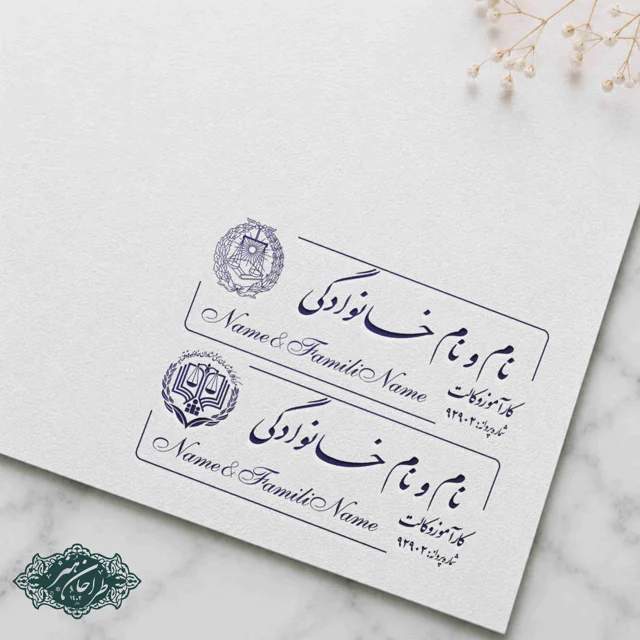 نام و نام خانوادگی
Name & Famili Name
کارآموز وکالت
شماره پروانه: ۹۲۹۰۲
نام و نام خانوادگی
Name & Famili Name
کارآموز وکالت
شماره پروانه: ۹۲۹۰۲